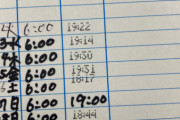 火 6:00 19:22
3水 6:00 19:14
木 6:00 19:50
5金 6:00 19:51
6:00 18:17
7日 6:00 19:00
6:00 18:44